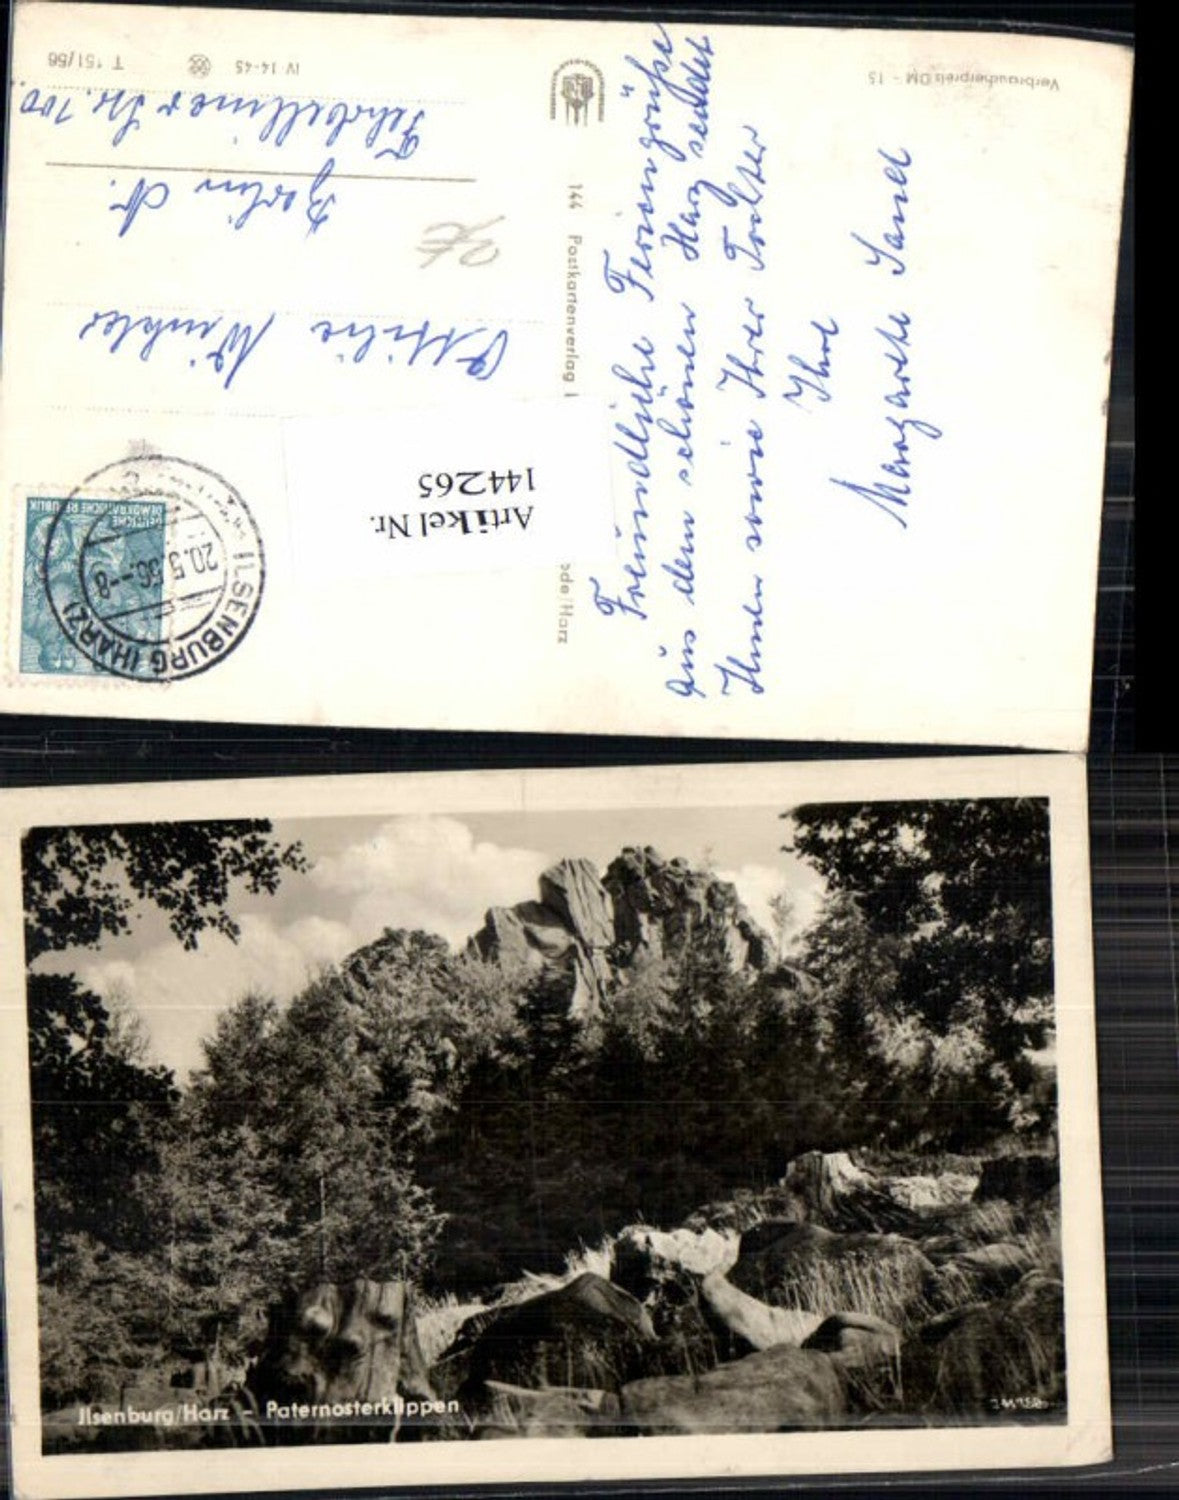 Verbraucherpreis DM -.15
IV 14-45
T 151/56
Freundliche Feriengrüße
aus dem schönen Harz sendet
Ihnen sowie Ihrer Tochter
Ihre
Margarete
144 Postkartenverlag
ode/Harz
Ottilie Winkler
Berlin N.
Fehrbelliner Str. 100.
DEUTSCHE
DEMOKRATISCHE REPUBLIK
ILSENBURG (HARZ)
20.5.56.-8
Artikel Nr.
144265
Jlsenburg/Harz - Paternosterklippen